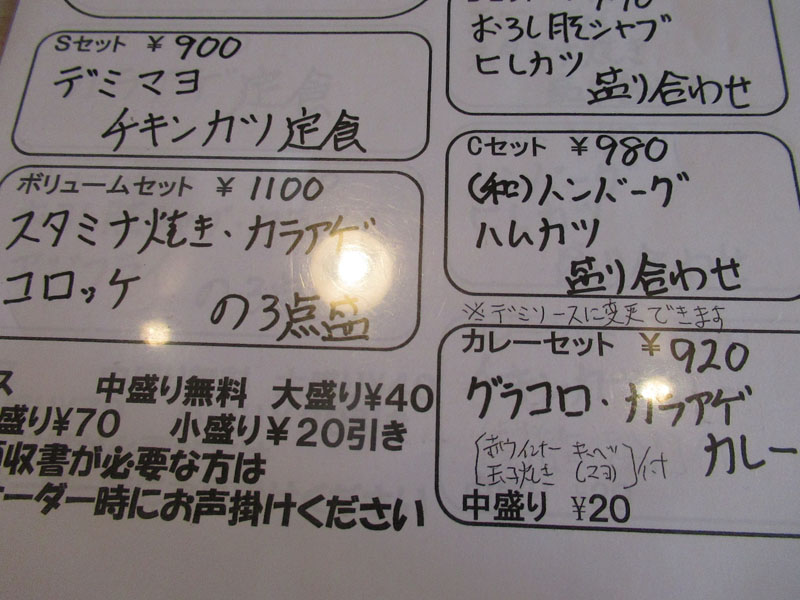 Sセット ¥900
デミマヨ
チキンカツ定食
ボリュームセット ¥1100
スタミナ焼き・カラアゲ
コロッケ
の3点盛
ス 中盛り無料 大盛り¥40
盛り¥70 小盛り¥20引き
収書が必要な方は
ーダー時にお声掛けください
おろし豚シャブ
ヒレカツ
盛り合わせ
Cセット ¥980
(和)ハンバーグ
ハムカツ
盛り合わせ
※デミソースに変更できます
カレーセット ¥920
グラコロ・カラアゲ
カレー
赤ウインナー キャベツ
玉子焼き (マヨ) 付
中盛り ¥20